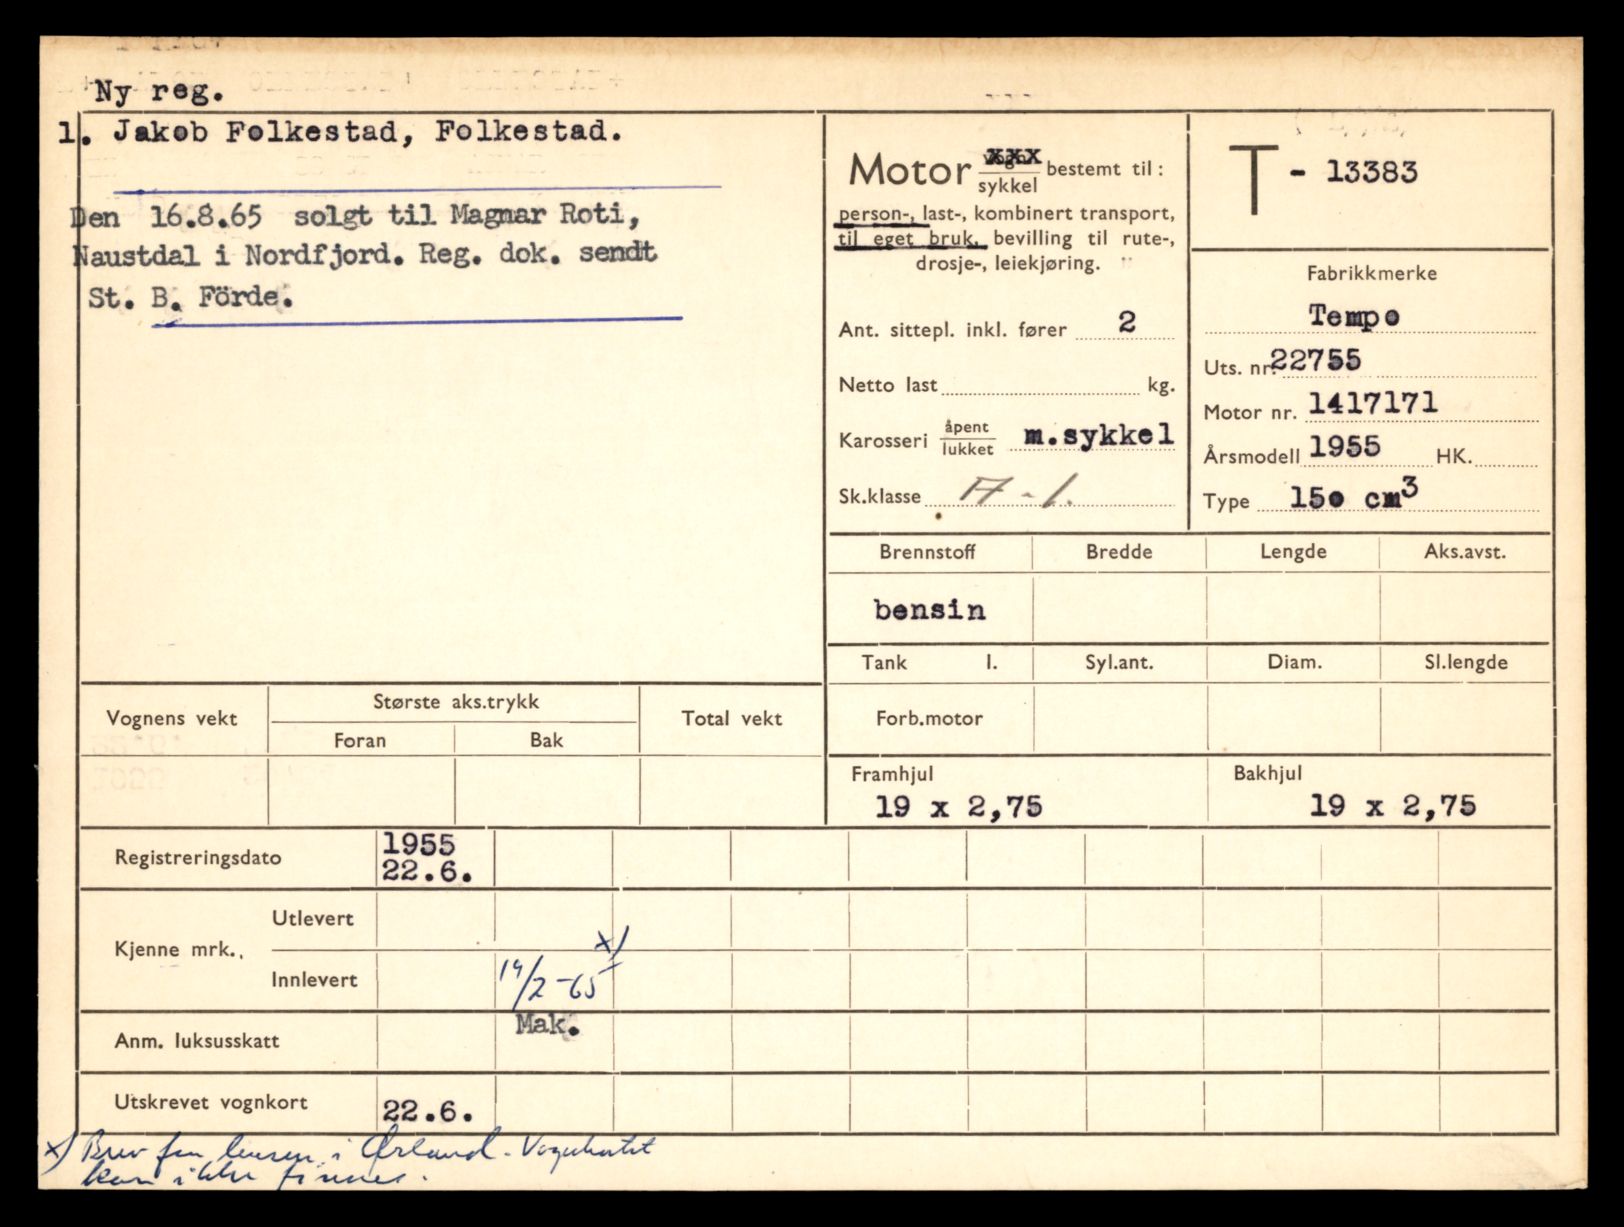 Ny reg.
1. Jakob Folkestad, Folkestad.
Den 16.8.65 solgt til Magnar Roti,
Naustdal i Nordfjord. Reg. dok. sendt
St. B. Förde.
Motor vogn xxx / sykkel bestemt til:
person-, last-, kombinert transport,
til eget bruk, bevilling til rute-,
drosje-, leiekjøring.
Ant. sittepl. inkl. fører 2
Netto last kg.
Karosseri åpent / lukket m.sykkel
Sk.klasse A - 1.
T - 13383
Fabrikkmerke
Tempo
Uts. nr. 22755
Motor nr. 1417171
Årsmodell 1955 HK.
Type 150 cm3
Brennstoff Bredde Lengde Aks.avst.
bensin
Tank l. Syl.ant. Diam. Sl.lengde
Forb.motor
Framhjul Bakhjul
19 x 2,75 19 x 2,75
Vognens vekt Største aks.trykk Total vekt
Foran Bak
Registreringsdato 1955
22.6.
Kjenne mrk., Utlevert
Innlevert 14/2-65 x)
Mak.
Anm. luksusskatt
Utskrevet vognkort 22.6.
x) Brev fra lensm. i Ørland. Vognkortet
kan ikke finnes.